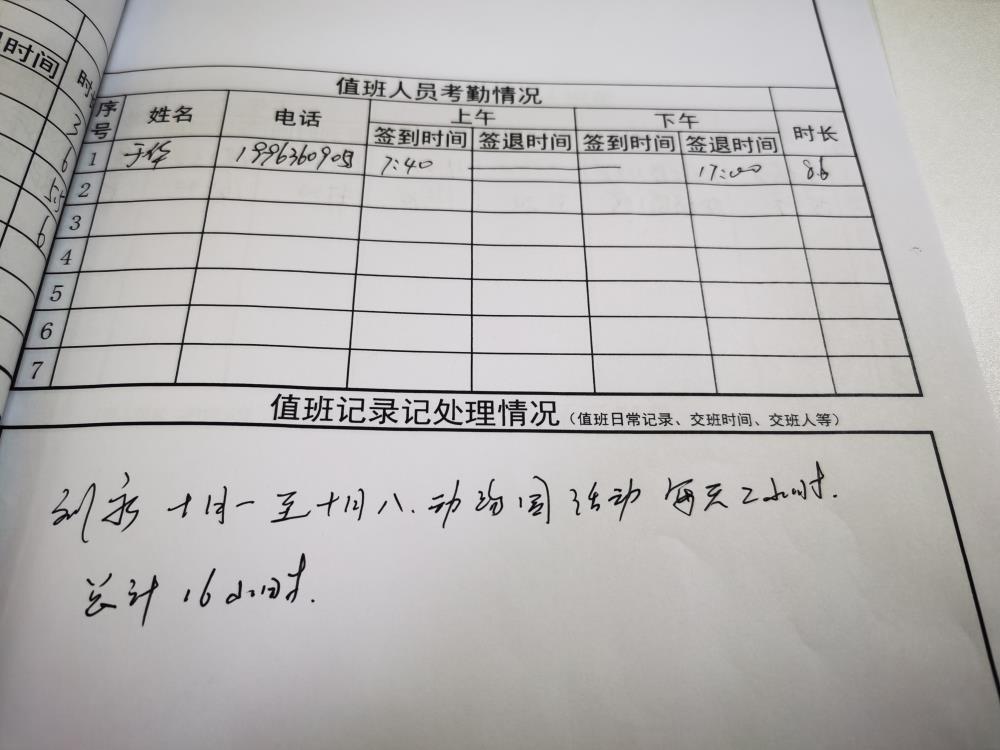 时间
时
3
6
5.5
6
值班人员考勤情况
序号 姓名 电话 上午 下午 时长
签到时间 签退时间 签到时间 签退时间
1 于华 7:40 17:00 8.6
2
3
4
5
6
7
值班记录记处理情况（值班日常记录、交班时间、交班人等）
十月一至十月八.动物园活动 每天2小时.
总计16小时.